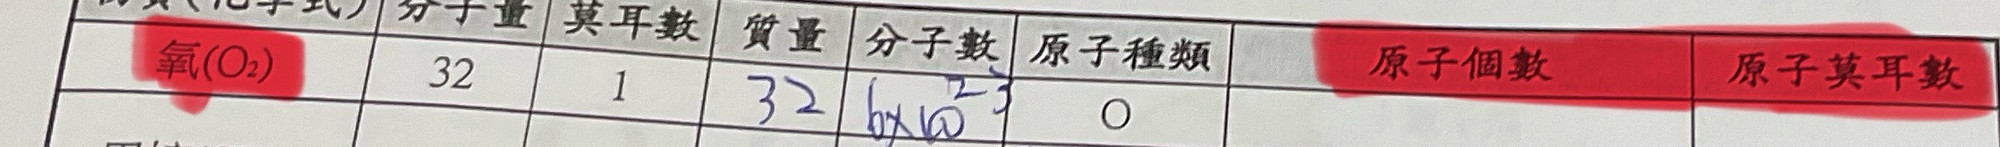 分子量 莫耳數 質量 分子數 原子種類 原子個數 原子莫耳數
氧(O₂) 32 1 32 6×10²³ O